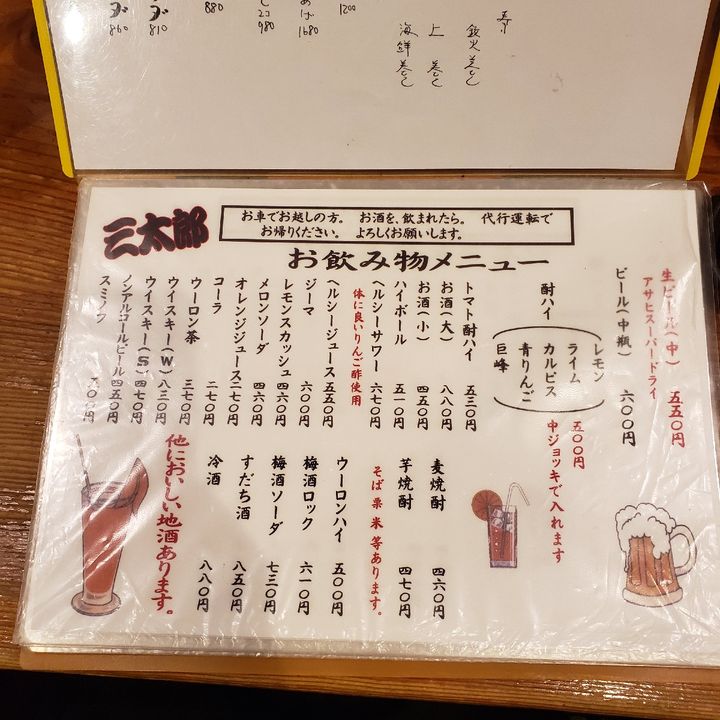 860
810
880
980
1680
1200
鉄火巻
上巻
海鮮巻
三太郎
お車でお越しの方。 お酒を、飲まれたら。 代行運転で
お帰りください。 よろしくお願いします。
お飲み物メニュー
生ビール(中) 五五〇円
アサヒスーパードライ
ビール(中瓶) 六〇〇円
酎ハイ
レモン
ライム
カルピス
青りんご
巨峰
五〇〇円
中ジョッキで入れます
トマト酎ハイ 五三〇円
お酒(大) 八八〇円
お酒(小) 四五〇円
ハイボール 五一〇円
ヘルシーサワー 六七〇円
体に良いりんご酢使用
ヘルシージュース 五五〇円
ジーマ 六〇〇円
レモンスカッシュ 四六〇円
メロンソーダ 四六〇円
オレンジジュース 二七〇円
コーラ 二七〇円
ウーロン茶 三七〇円
ウイスキー(W) 八三〇円
ウイスキー(S) 四七〇円
ノンアルコールビール 四五〇円
スミノフ 五〇〇円
麦焼酎 四六〇円
芋焼酎 四七〇円
そば 栗 米 等あります。
ウーロンハイ 五〇〇円
梅酒ロック 六一〇円
梅酒ソーダ 七三〇円
すだち酒 八五〇円
冷酒 八八〇円
他においしい地酒あります。